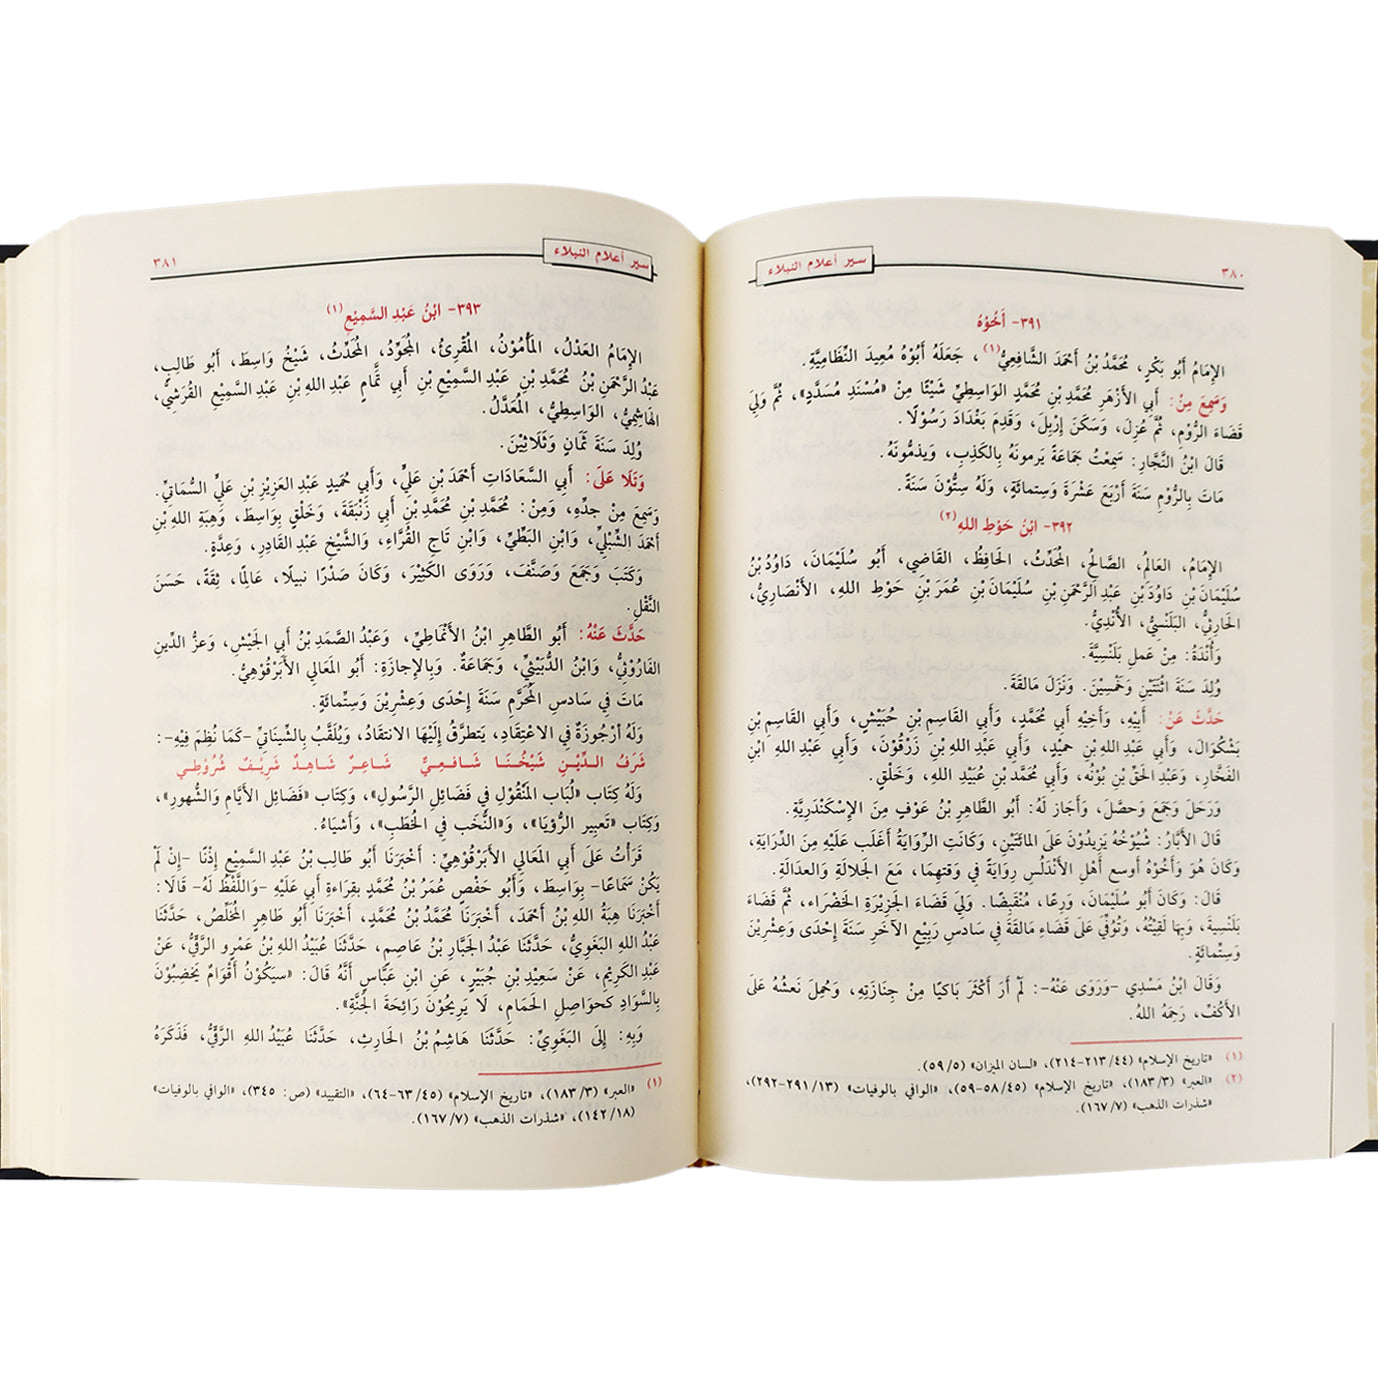 ٣٨٠
سير أعلام النبلاء
٣٩١- أَخُوْهُ
الإِمَامُ أَبُو بَكْرٍ، مُحَمَّدُ بْنُ أَحْمَدَ الشَّافِعِيُّ(١)، جَعَلَهُ أَبُوْهُ مُعِيدَ النِّظَامِيَّةِ.
وَسَمِعَ مِنْ: أَبِي الأَزْهَرِ مُحَمَّدِ بْنِ مُحَمَّدٍ الوَاسِطِيِّ شَيْئًا مِنْ «مُسْنَدِ مُسَدَّدٍ»، ثُمَّ وَلِيَ
قَضَاءَ الرُّوْمِ، ثُمَّ عُزِلَ، وَسَكَنَ إِرْبِلَ، وَقَدِمَ بَغْدَادَ رَسُوْلًا.
قَالَ ابْنُ النَّجَّارِ: سَمِعْتُ جَمَاعَةً يَرمونَهُ بِالكَذِبِ، وَيذمُّونَهُ.
مَاتَ بِالرُّوْمِ سَنَةَ أَرْبَعَ عَشْرَةَ وَسِتمائَةٍ، وَلَهُ سِتُّوْنَ سَنَةً.
٣٩٢- ابْنُ حَوْطِ اللهِ(٢)
الإِمَامُ، العَالِمُ، الصَّالِحُ، المُحَدِّثُ، الحَافِظُ، القَاضِي، أَبُو سُلَيْمَانَ، دَاوُدُ بْنُ
سُلَيْمَانَ بْنِ دَاوُدَ بْنِ عَبْدِ الرَّحْمَنِ بْنِ سُلَيْمَانَ بْنِ عُمَرَ بْنِ حَوْطِ اللهِ، الأَنْصَارِيُّ،
الحَارِثِيُّ، البَلَنْسِيُّ، الأُنْدِيُّ.
وَأُنْدَةُ: مِنْ عَملِ بَلَنْسِيَّةَ.
وُلِدَ سَنَةَ اثْنَتَيْنِ وَخَمْسِيْنَ. وَنَزَلَ مَالقَةَ.
حَدَّثَ عَنْ: أَبِيْهِ، وَأَخِيْهِ أَبِي مُحَمَّدٍ، وَأَبِي القَاسِمِ بْنِ حُبَيْشٍ، وَأَبِي القَاسِمِ بْنِ
بَشْكُوَالَ، وَأَبِي عَبْدِ اللهِ بْنِ حميْدٍ، وَأَبِي عَبْدِ اللهِ بْنِ زَرْقُوْنَ، وَأَبِي عَبْدِ اللهِ ابْنِ
الفَخَّارِ، وَعَبْدِ الحَقِّ بْنِ بُوْنُه، وَأَبِي مُحَمَّدِ بْنِ عُبَيْدِ اللهِ، وَخَلْقٍ.
وَرَحَلَ وَجَمَعَ وَحصَّلَ، وَأَجَازَ لَهُ: أَبُو الطَّاهِرِ بْنُ عَوْفٍ مِنَ الإِسْكَنْدَرِيَّةِ.
قَالَ الأَبَّارُ: شُيُوْخُهُ يَزِيدُوْنَ عَلَى المائَتَيْنِ، وَكَانَتِ الرِّوَايَةُ أَغْلَب عَلَيْهِ مِنَ الدِّرَايَةِ،
وَكَانَ هُوَ وَأَخُوْهُ أَوسع أَهْلِ الأَنْدَلُسِ رِوَايَةً فِي وَقتِهِمَا، مَعَ الجَلَالَةِ وَالعدَالَةِ.
قَالَ: وَكَانَ أَبُو سُلَيْمَانَ، وَرِعًا، مُنْقَبِضًا. وَلِيَ قَضَاءَ الجَزِيْرَةِ الخَضْرَاء، ثُمَّ قَضَاءَ
بَلَنْسِيَةَ، وَبِهَا لَقِيْتُهُ، وَتُوُفِّيَ عَلَى قَضَاءِ مَالقَةَ فِي سَادسِ رَبِيْعٍ الآخَرِ سَنَةَ إِحْدَى وَعِشْرِيْنَ
وَسِتِّمائَةٍ.
وَقَالَ ابْنُ مَسْدِي -وَرَوَى عَنْهُ-: لَمْ أَرَ أَكْثَرَ بَاكيًا مِنْ جِنَازَتِهِ، وَحُمِلَ نَعشُهُ عَلَى
الأَكُفِّ، رَحِمَهُ اللهُ.
(١) «تاريخ الإسلام» (٤٤/ ٢١٣-٢١٤)، «لسان الميزان» (٥/ ٥٩).
(٢) «العبر» (٣/ ١٨٣)، «تاريخ الإسلام» (٤٥/ ٥٨-٥٩)، «الوافي بالوفيات» (١٣/ ٢٩١-٢٩٢)،
«شذرات الذهب» (٧/ ١٦٧).
٣٨١
سير أعلام النبلاء
٣٩٣- ابْنُ عَبْدِ السَّمِيْعِ(١)
الإِمَامُ العَدْلُ، المَأْمُوْنُ، المُقْرِئُ، المُجَوِّدُ، المُحَدِّثُ، شَيْخُ وَاسِطَ، أَبُو طَالِبٍ،
عَبْدُ الرَّحْمَنِ بْنُ مُحَمَّدِ بْنِ عَبْدِ السَّمِيْعِ بْنِ أَبِي تَمَّامٍ عَبْدِ اللهِ بْنِ عَبْدِ السَّمِيْعِ القُرَشِيُّ،
الهَاشِمِيُّ، الوَاسِطِيُّ، المُعَدَّلُ.
وُلِدَ سَنَةَ ثَمَانٍ وَثَلَاثِيْنَ.
وَتَلَا عَلَى: أَبِي السَّعَادَاتِ أَحْمَدَ بْنِ عَلِيٍّ، وَأَبِي حُمَيدٍ عَبْدِ العَزِيْزِ بْنِ عَلِيٍّ السُّمَاتِيِّ.
وَسَمِعَ مِنْ جدِّهِ، وَمِنْ: مُحَمَّدِ بْنِ مُحَمَّدِ بْنِ أَبِي زَنْبَقَةَ، وَخَلْقٍ بِوَاسِطَ، وَهِبَةِ اللهِ بْنِ
أَحْمَدَ الشِّبْلِيِّ، وَابْنِ البَطِّيِّ، وَابْنِ تَاجِ القُرَّاءِ، وَالشَّيْخِ عَبْدِ القَادِرِ، وَعِدَّةٍ.
وَكَتَبَ وَجَمَعَ وَصَنَّفَ، وَرَوَى الكَثِيْرَ، وَكَانَ صَدْرًا نبيلًا، عَالِمًا، ثِقَةً، حَسَنَ
النَّقْلِ.
حَدَّثَ عَنْهُ: أَبُو الطَّاهِرِ ابْنُ الأَنْمَاطِيِّ، وَعَبْدُ الصَّمَدِ بْنُ أَبِي الجَيْشِ، وَعزُّ الدِّينِ
الفَارُوْثِيُّ، وَابْنُ الدُّبَيْثِيِّ، وَجَمَاعَةٌ. وَبِالإِجازَةِ: أَبُو المَعَالِي الأَبَرْقُوْهِيُّ.
مَاتَ فِي سَادسِ المُحَرَّمِ سَنَةَ إِحْدَى وَعِشْرِيْنَ وَسِتِّمائَةٍ.
وَلَهُ أرْجُوزَةٌ فِي الاعْتِقَادِ، يَتطرَّقُ إِلَيْهَا الانتقَادُ، وَيُلَقَّبُ بِالشِّينَاتِيِّ -كَمَا نُظِمَ فِيْهِ-:
شَرَفُ الدِّيْنِ شَيْخُنَا شَافعِيٌّ شَاعِرٌ شَاهِدٌ شَرِيْفٌ شُرُوْطِي
وَلَهُ كِتَاب «لُبَاب المَنْقُوْلِ فِي فضَائِلِ الرَّسُولِ»، وَكِتَاب «فَضَائِل الأَيَّامِ وَالشُّهورِ»،
وَكِتَاب «تَعبِير الرُّؤيَا»، وَ«النُّخَب فِي الخُطَبِ»، وَأَشيَاءُ.
قَرَأْتُ عَلَى أَبِي المَعَالِي الأَبَرْقُوْهِيِّ: أَخْبَرَنَا أَبُو طَالِبٍ بْنُ عَبْدِ السَّمِيْعِ إِذْنًا -إِنْ لَمْ
يَكُنْ سَمَاعًا- بِوَاسِطَ، وَأَبُو حَفْصٍ عُمَرُ بْنُ مُحَمَّدٍ بِقِرَاءةِ أَبِي عَلَيْهِ -وَاللَّفْظُ لَهُ- قَالَا:
أَخْبَرَنَا هِبَةُ اللهِ بْنُ أَحْمَدَ، أَخْبَرَنَا مُحَمَّدُ بْنُ مُحَمَّدٍ، أَخْبَرَنَا أَبُو طَاهِرٍ المُخَلِّصُ، حَدَّثَنَا
عَبْدُ اللهِ البَغَوِيُّ، حَدَّثَنَا عَبْدُ الجَبَّارِ بْنُ عَاصِمٍ، حَدَّثَنَا عُبَيْدُ اللهِ بْنُ عَمْرٍو الرَّقِّيُّ، عَنْ
عَبْدِ الكَرِيْمِ، عَنْ سَعِيْدِ بْنِ جُبَيْرٍ، عَنِ ابْنِ عَبَّاسٍ أَنَّهُ قَالَ: «سيَكُوْنُ أَقْوَامٌ يَخضِبُوْنَ
بِالسَّوَادِ كَحوَاصِلِ الحَمَامِ، لَا يَرِيحُوْنَ رَائِحَةَ الجَنَّةِ».
وَبِهِ: إِلَى البَغَوِيِّ: حَدَّثَنَا هَاشِمُ بْنُ الحَارِثِ، حَدَّثَنَا عُبَيْدُ اللهِ الرَّقِّيُّ، فَذَكَرَهُ
(١) «العبر» (٣/ ١٨٣)، «تاريخ الإسلام» (٤٥/ ٦٣-٦٤)، «التقييد» (ص: ٣٤٥)، «الوافي بالوفيات»
(١٨/ ١٤٢)، «شذرات الذهب» (٧/ ١٦٧).